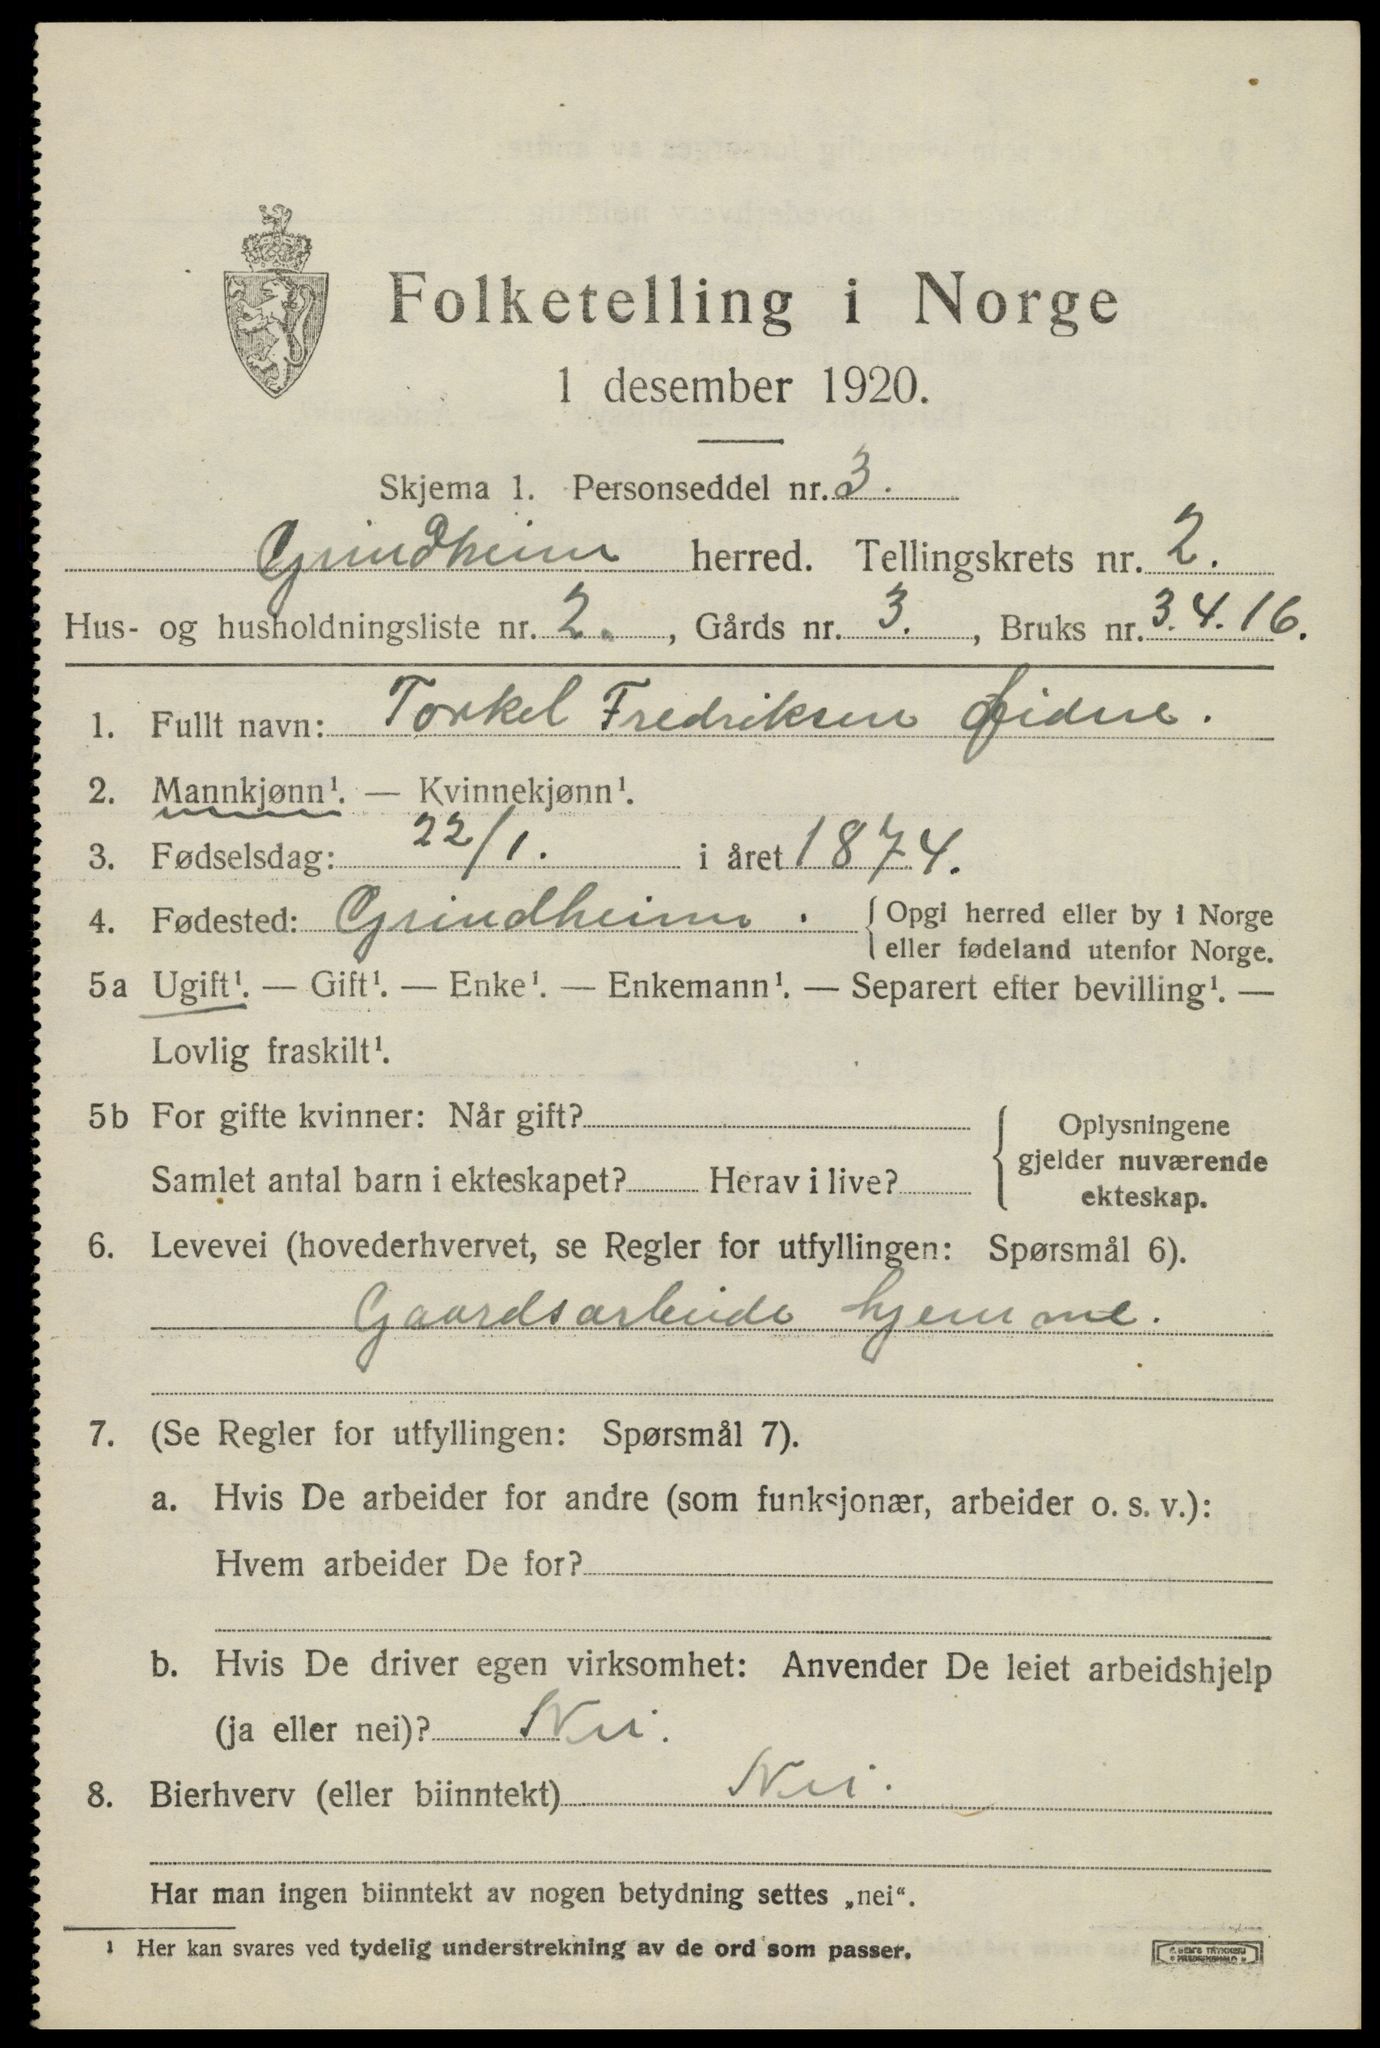 Folketelling i Norge
1 desember 1920.
Skjema 1. Personseddel nr. 3.
Grindheim herred. Tellingskrets nr. 2.
Hus- og husholdningsliste nr. 2., Gårds nr. 3., Bruks nr. 3. 4. 16.
1. Fullt navn: Torkel Fredriksen Øidne.
2. Mannkjønn¹. — Kvinnekjønn¹.
3. Fødselsdag: 22/1. i året 1874.
4. Fødested: Grindheim. Opgi herred eller by i Norge
eller fødeland utenfor Norge.
5a Ugift¹. — Gift¹. — Enke¹. — Enkemann¹. — Separert efter bevilling¹. —
Lovlig fraskilt¹.
5b For gifte kvinner: Når gift?
Samlet antal barn i ekteskapet? Herav i live?
Oplysningene
gjelder nuværende
ekteskap.
6. Levevei (hovederhvervet, se Regler for utfyllingen: Spørsmål 6).
Gaardsarbeide hjemme.
7. (Se Regler for utfyllingen: Spørsmål 7).
a. Hvis De arbeider for andre (som funksjonær, arbeider o. s. v.):
Hvem arbeider De for?
b. Hvis De driver egen virksomhet: Anvender De leiet arbeidshjelp
(ja eller nei)? Nei.
8. Bierhverv (eller biinntekt) Nei.
Har man ingen biinntekt av nogen betydning settes „nei“.
¹ Her kan svares ved tydelig understrekning av de ord som passer.